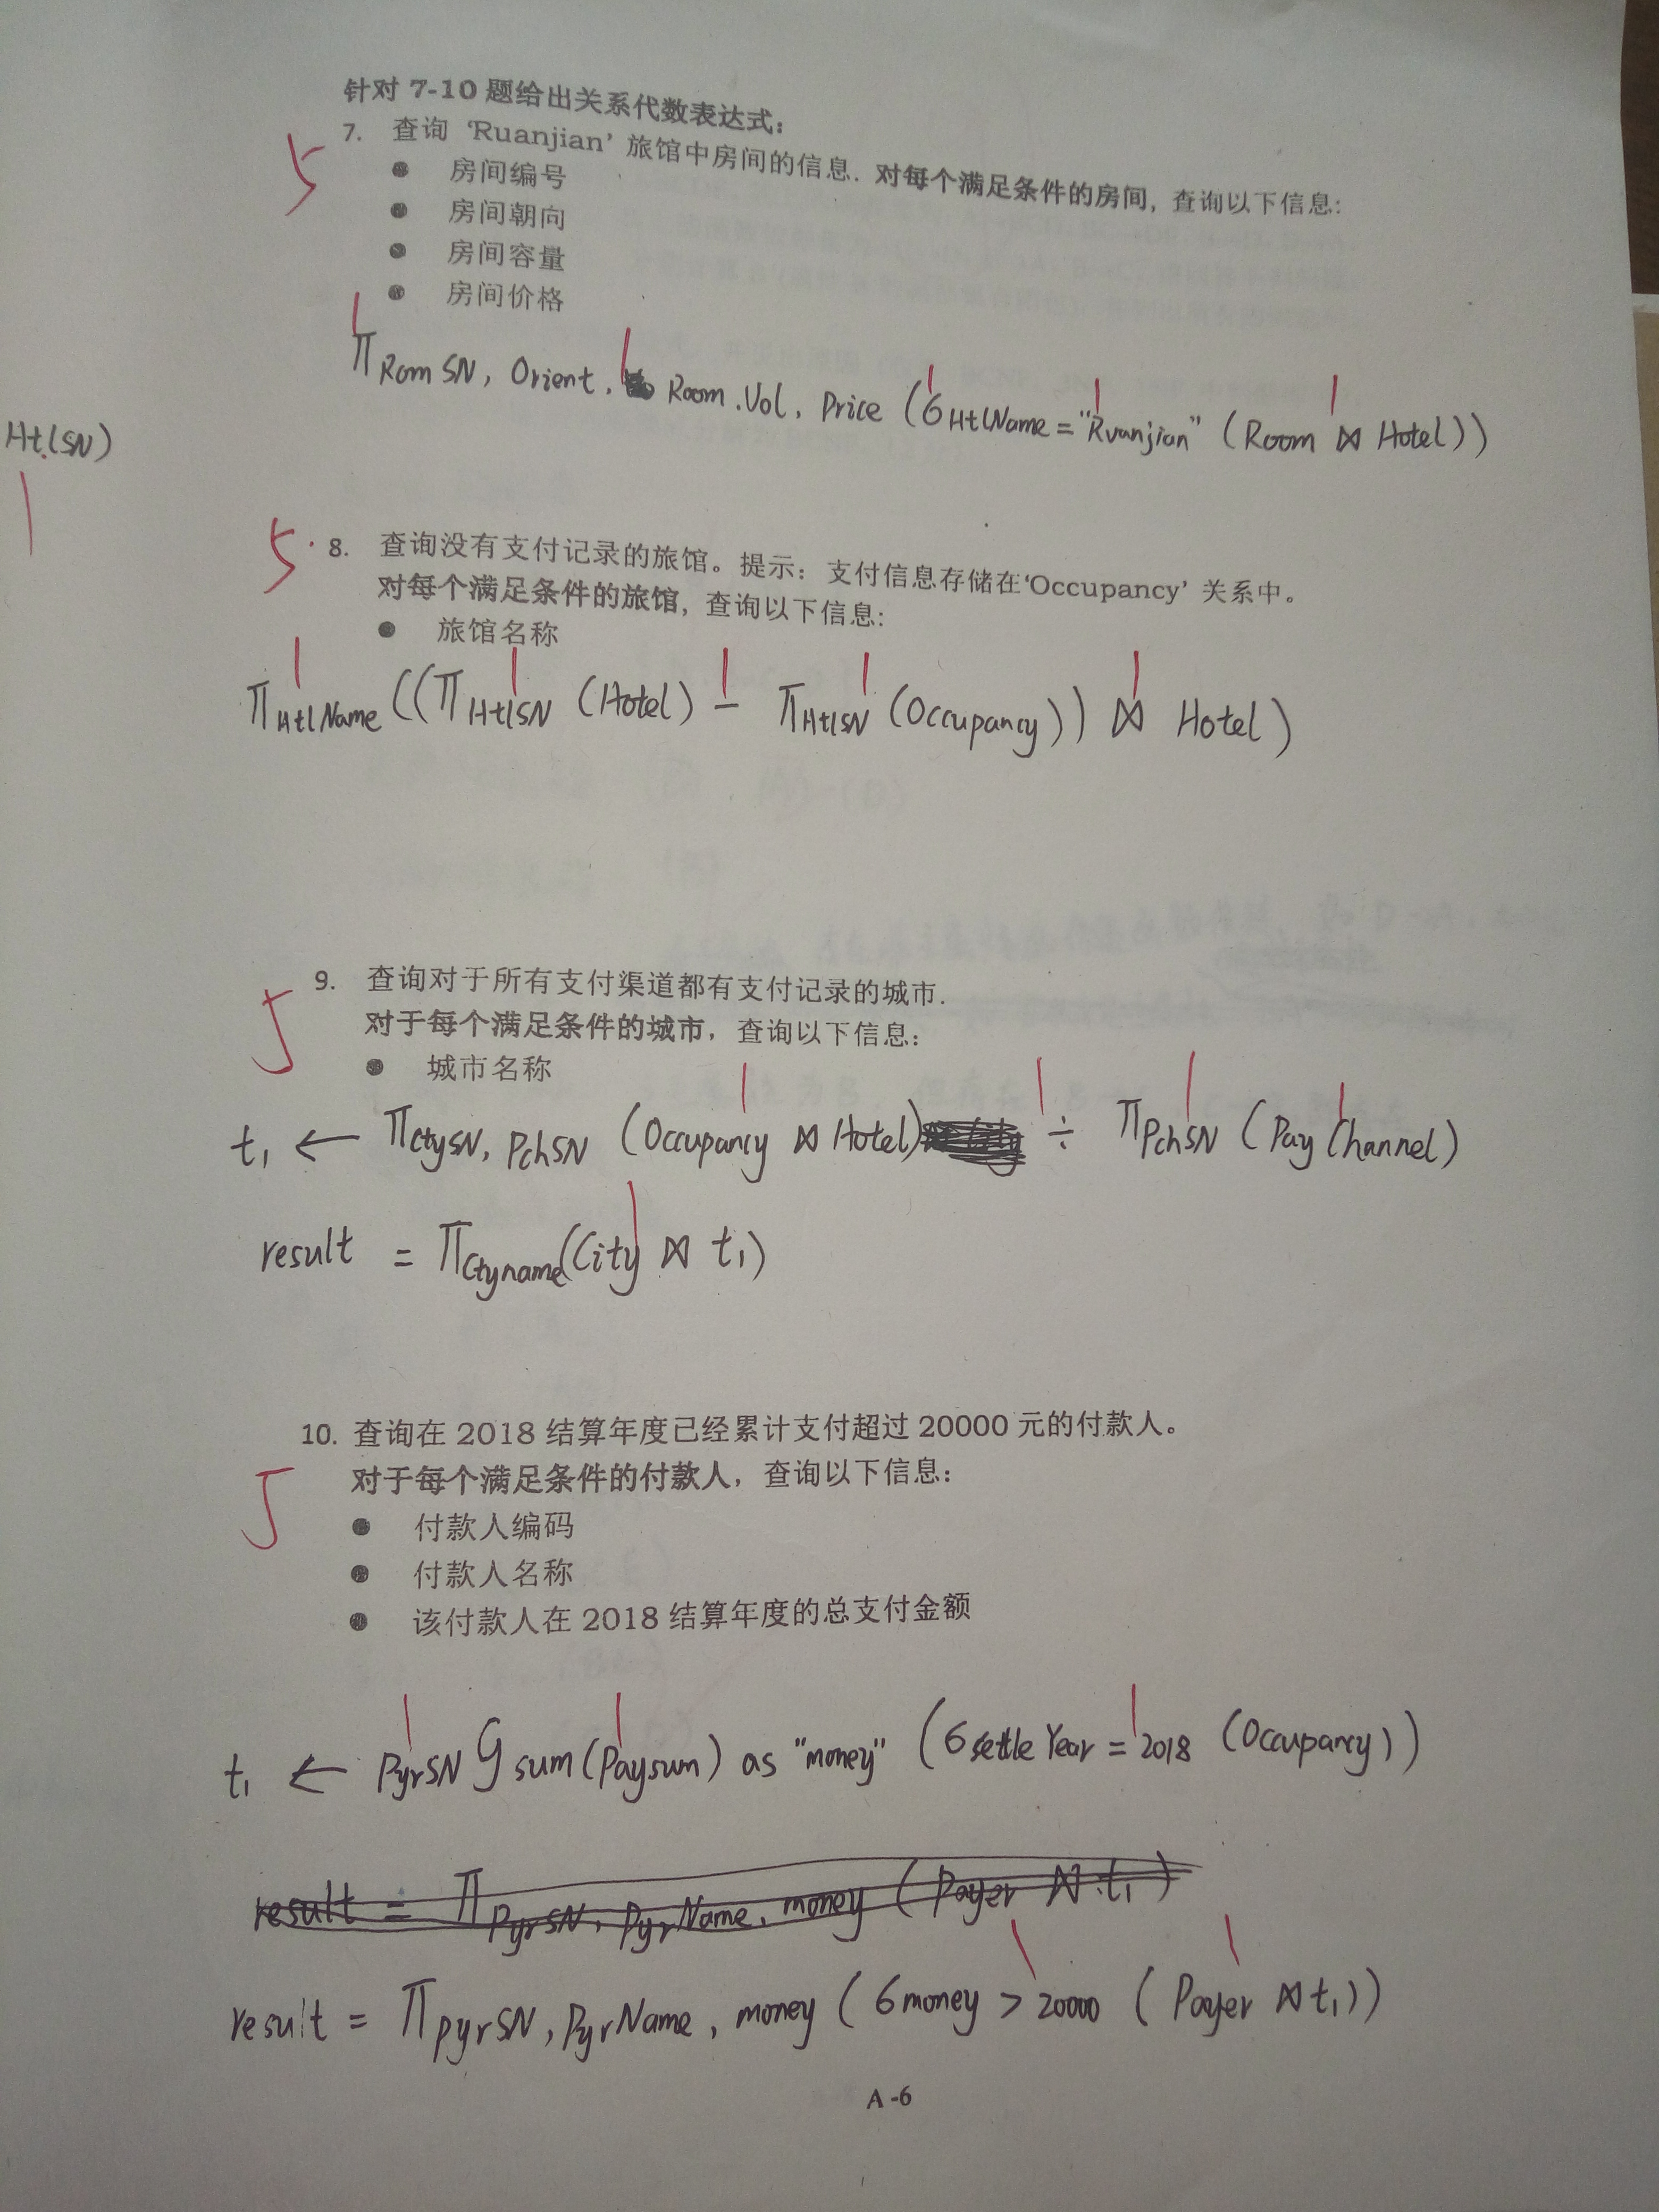 针对 7-10 题给出关系代数表达式:
5
7. 查询 'Ruanjian' 旅馆中房间的信息. 对每个满足条件的房间, 查询以下信息:
● 房间编号
● 房间朝向
● 房间容量
● 房间价格
π Rom SN, Orient, Room.Vol, Price (σ HtlName = "Ruanjian" (Room ⋈ Hotel))
Ht(SN)
5
8. 查询没有支付记录的旅馆。提示: 支付信息存储在'Occupancy' 关系中。
对每个满足条件的旅馆, 查询以下信息:
● 旅馆名称
π HtlName ((π HtlSN (Hotel) - π HtlSN (Occupancy)) ⋈ Hotel)
5
9. 查询对于所有支付渠道都有支付记录的城市.
对于每个满足条件的城市, 查询以下信息:
● 城市名称
t₁ ← π CtySN, PchSN (Occupancy ⋈ Hotel) ÷ π PchSN (Pay Channel)
result = π Ctyname (City ⋈ t₁)
5
10. 查询在 2018 结算年度已经累计支付超过 20000 元的付款人。
对于每个满足条件的付款人, 查询以下信息:
● 付款人编码
● 付款人名称
● 该付款人在 2018 结算年度的总支付金额
t₁ ← PyrSN G sum(Paysum) as "money" (σ settle Year = 2018 (Occupancy))
result = π PyrSN, PyrName, money (Payer ⋈ t₁)
result = π PyrSN, PyrName, money (σ money > 20000 (Payer ⋈ t₁))
A -6